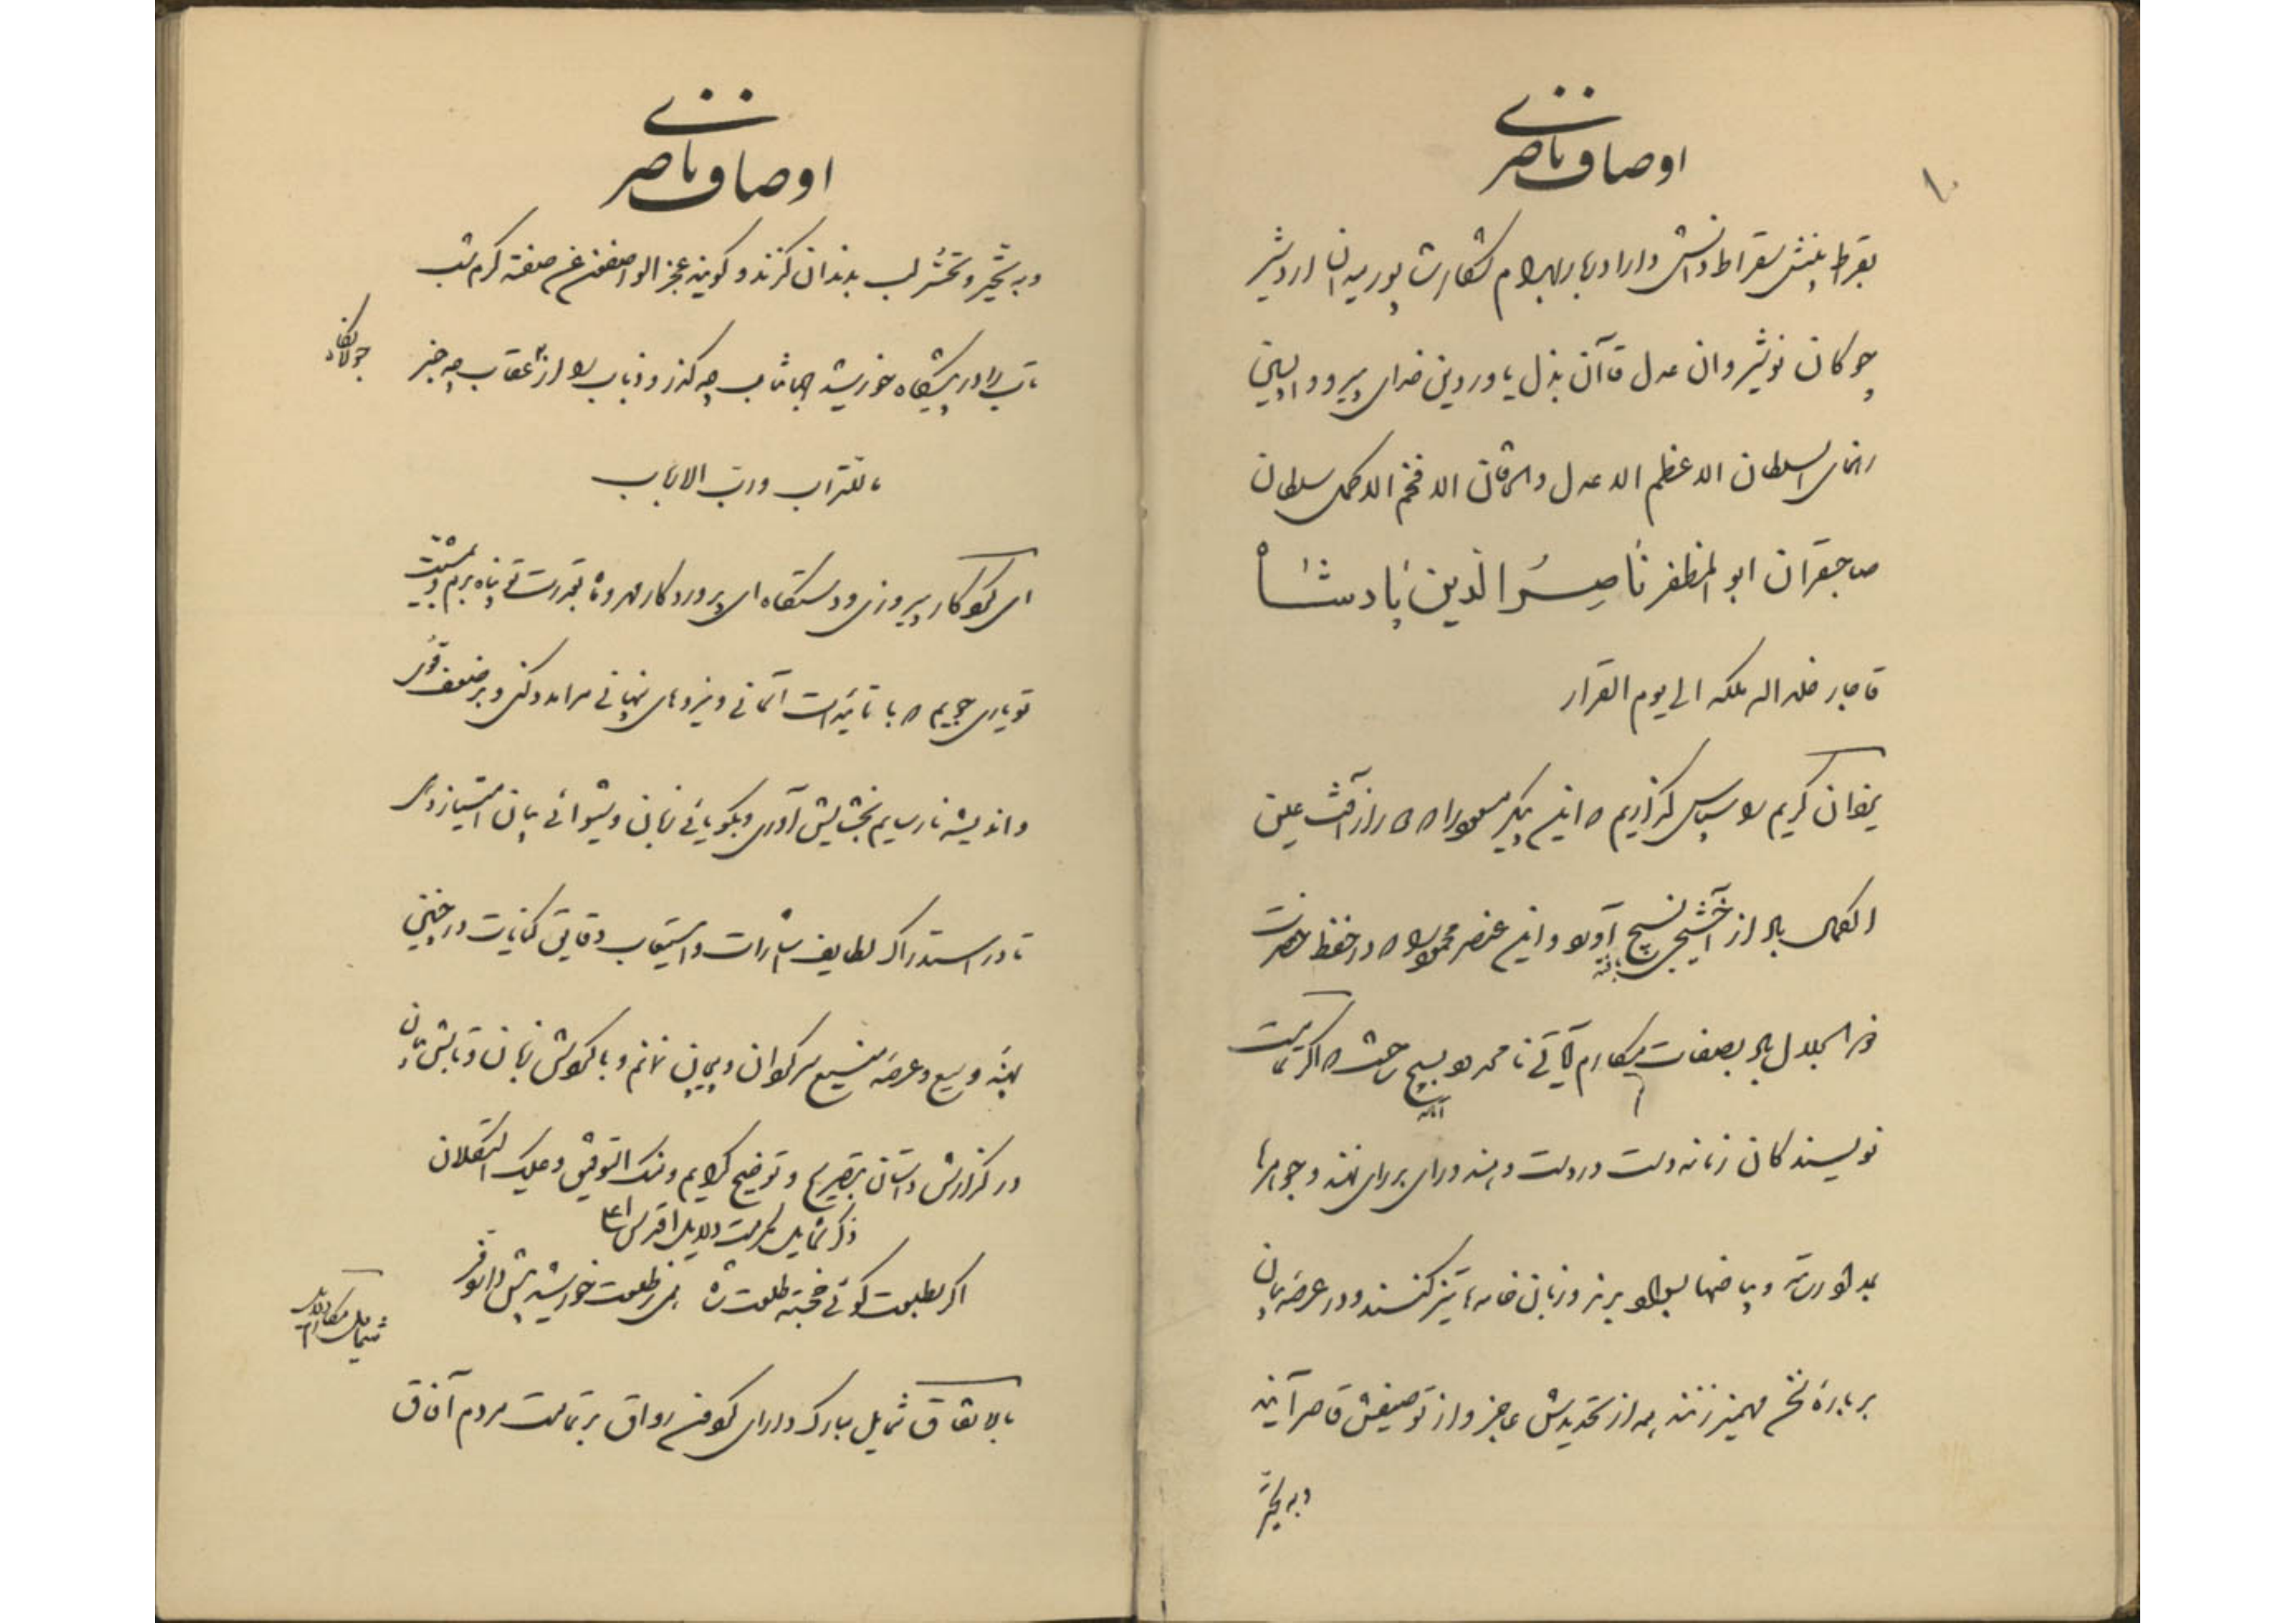 ۱۰
اوصاف ناصری
بقراط بینش سقراط دانش دارا دربار بهرام شکار شاپور میدان اردشیر
چوکان نوشیروان عدل قاآن بذل یاور دین خدای پیرو و آیین
رهنمای السلطان الاعظم الاعدل والخاقان الافخم الاکمل سلطان
صاحبقران ابوالمظفر ناصر الدین پادشاه
قاجار خلد الله ملکه الی یوم القرار
یزدان کریم را سپاس گذاریم که این پیکر مسعود را که از
الکمال از آورد و این عنصر محمود را که در حفظ حضرت
ذو الجلال بصفات مکارم که اگر تمامت
نویسندگان زمانه دست در دست دهند و رای بر رای نهند و جوهرها
بدوات و بیاضها بسواد برند و زبان خامه تیز کنند و در عرصه بیان
بر باره سخن مهمیز زنند همه از تحدیدش عاجز و از توصیفش قاصر آیند
و به تحیر
اوصاف ناصری
و به تحیر و تحسّر لب بدندان گزند و گویند عجز الواصفون عن صفته کرم شب
تاب را در پیشگاه خورشید جهانتاب چه گذر و ذباب را از عقاب چه خبر
ماللتراب و رب الارباب
ای پیروزی و دستگاه ای پروردگار مهر و ماه بقدرت تو پناه بریم و بمشیت
تو یاری جوییم که با تائیدات آسمانی و نیروهای نهانی مرا مدد کنی و بر ضعف قوی
و اندیشه نارسایم بخشایش آوری و بگویائی زبان و شیوائی بیان امتیاز دهی
تا در استدراک لطایف اشارات و استیعاب دقایق کنایات در چنین
پهنه وسیع و عرصه فسیح سرگردان و بیجان نمانم و با کوشش زبان و تابش بیان
در گزارش داستان بتصریح و توضیح گرایم و منک التوفیق و علیک التکلان
ذکر شمایل اقدس اعلی
اگر بطلعت گوئی خجسته طلعت شاه همی ز طلعت خورشید بیش دارد فر
بالاتفاق شمایل مبارک دارای گردون رواق بر تمامت مردم آفاق